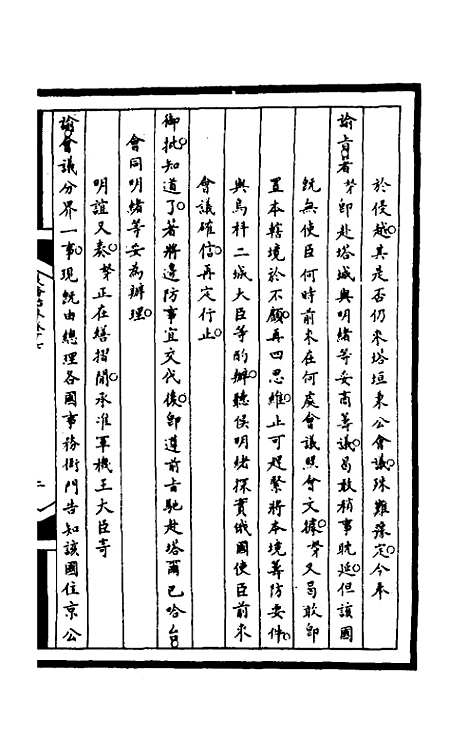 於侵越其是否仍來塔垣秉公會議殊難豫定今奉
諭旨着奴才即赴塔城與明緒等妥商籌議曷敢稍事耽延但該國
既無使臣何時前來在何處會議照會文據奴才又曷敢即
置本轄境於不顧再四思維止可趕緊將本境籌防要件
與烏科二城大臣等酌辦聽候明緒探實俄國使臣前來
會議確信再定行止
御批知道了著將邊防事宜交代後即遵前旨馳赴塔爾巴哈台
會同明緒等妥為辦理
明誼又奏奴才正在繕摺閒承准軍機王大臣寄
諭會議分界一事現既由總理各國事務衙門告知該國住京公